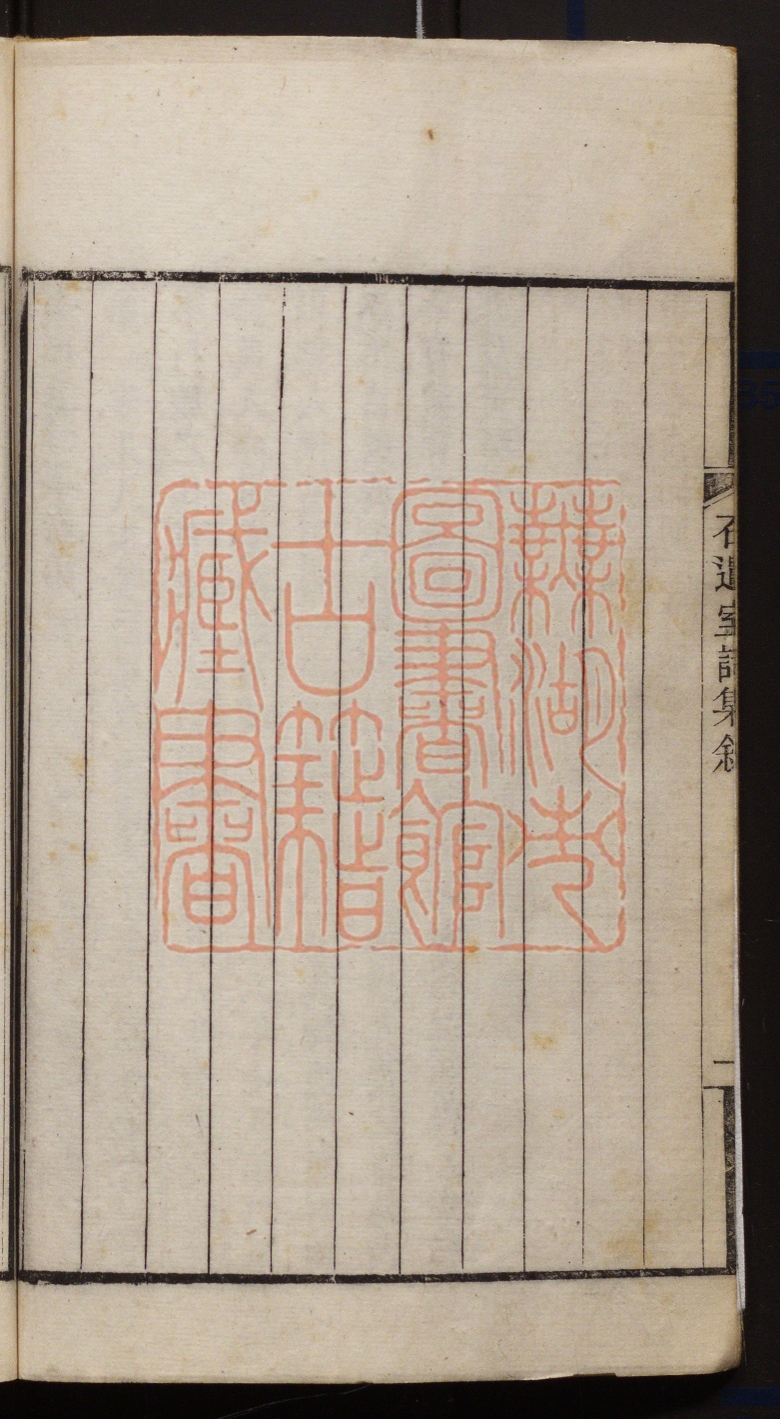 石遺室詩集敘
一
蕪湖市
圖書館
古籍
藏書